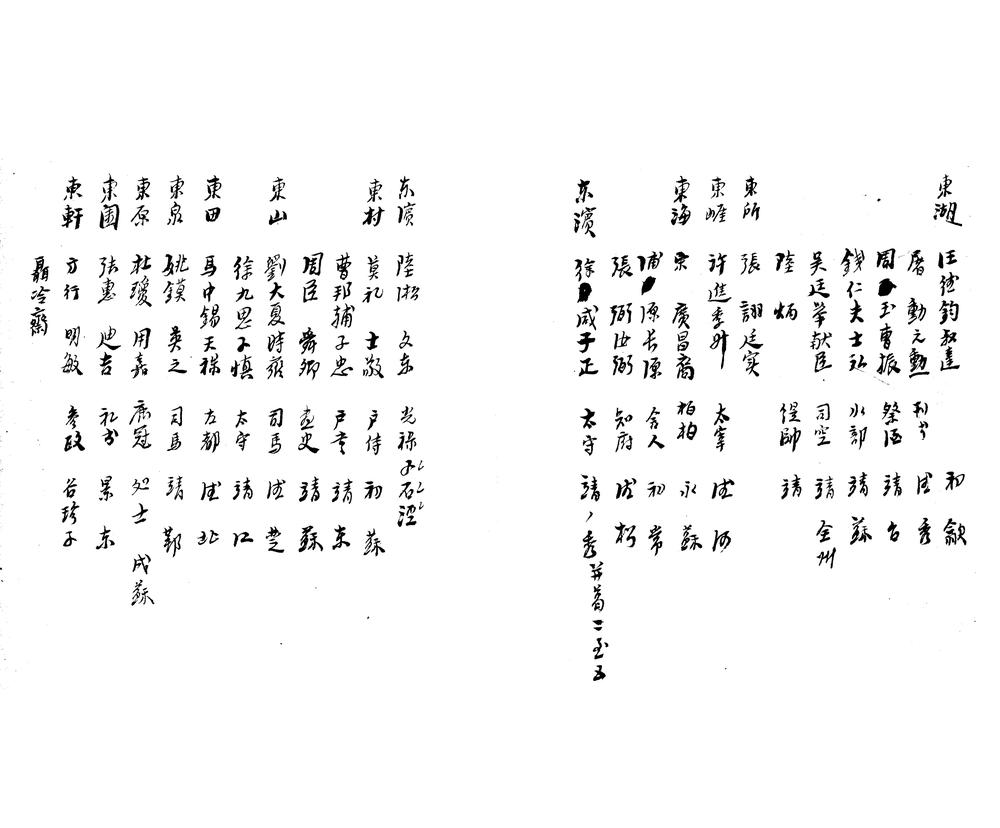 東湖 汪 鈞 初 歙
屠勳 元勳 刑 秀
周玉 曹振 祭酒 靖 台
錢仁夫 士弘 水部 靖 蘇
吴廷舉 献臣 司空 靖 全州
陸炳 緹帥 靖
東所 張詡 廷实
東崖 许進 季升 太宰 河
東海 宋廣 昌裔 柏柏 永 蘇
浦源 长源 舍人 初 常
張弼 汝弼 知府 松
东濱 徐咸 子正 太守 靖 秀
东濱 陸淞 文东 光禄 子石涇
東村 莫礼 士敬 户侍 初 蘇
曹邦輔 子忠 户 靖 东
周臣 舜卿 畫史 靖 蘇
東山 劉大夏 時雍 司馬 楚
徐九思 子慎 太守 靖 江
東田 馬中錫 天祿 左都 北
東泉 姚鏌 英之 司馬 靖 鄞
東原 杜瓊 用嘉 鹿冠 処士 成 蘇
東園 张惠 迪吉 礼 景 东
東軒 方行 明敏 参政 谷珍子
聶冷齋